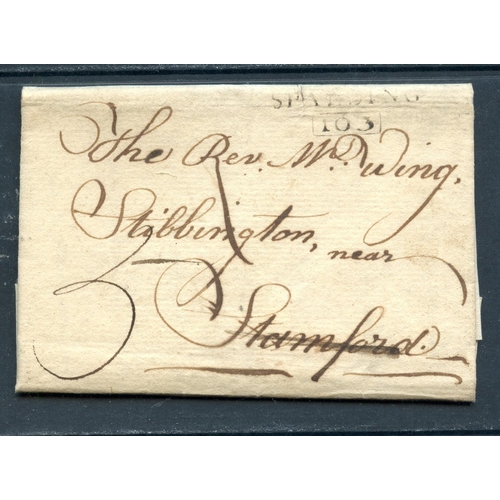 SPALDING
103
The Rev. Mr. Wing,
Stibbington, near
Stamford.
3